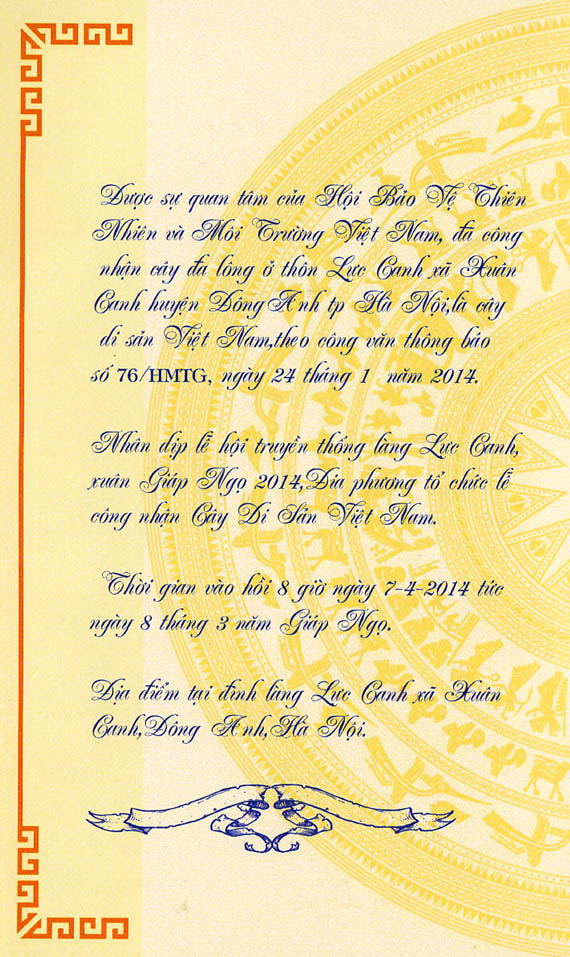 Được sự quan tâm của Hội Bảo Vệ Thiên
Nhiên và Môi Trường Việt Nam, đã công
nhận cây đa lông ở thôn Lực Canh xã Xuân
Canh huyện Đông Anh tp Hà Nội,là cây
di sản Việt Nam,theo công văn thông báo
số 76/HMTG, ngày 24 tháng 1 năm 2014.
Nhân dịp lễ hội truyền thống làng Lực Canh,
xuân Giáp Ngọ 2014,Địa phương tổ chức lễ
công nhận Cây Di Sản Việt Nam.
Thời gian vào hồi 8 giờ ngày 7-4-2014 tức
ngày 8 tháng 3 năm Giáp Ngọ.
Địa điểm tại đình làng Lực Canh xã Xuân
Canh,Đông Anh,Hà Nội.